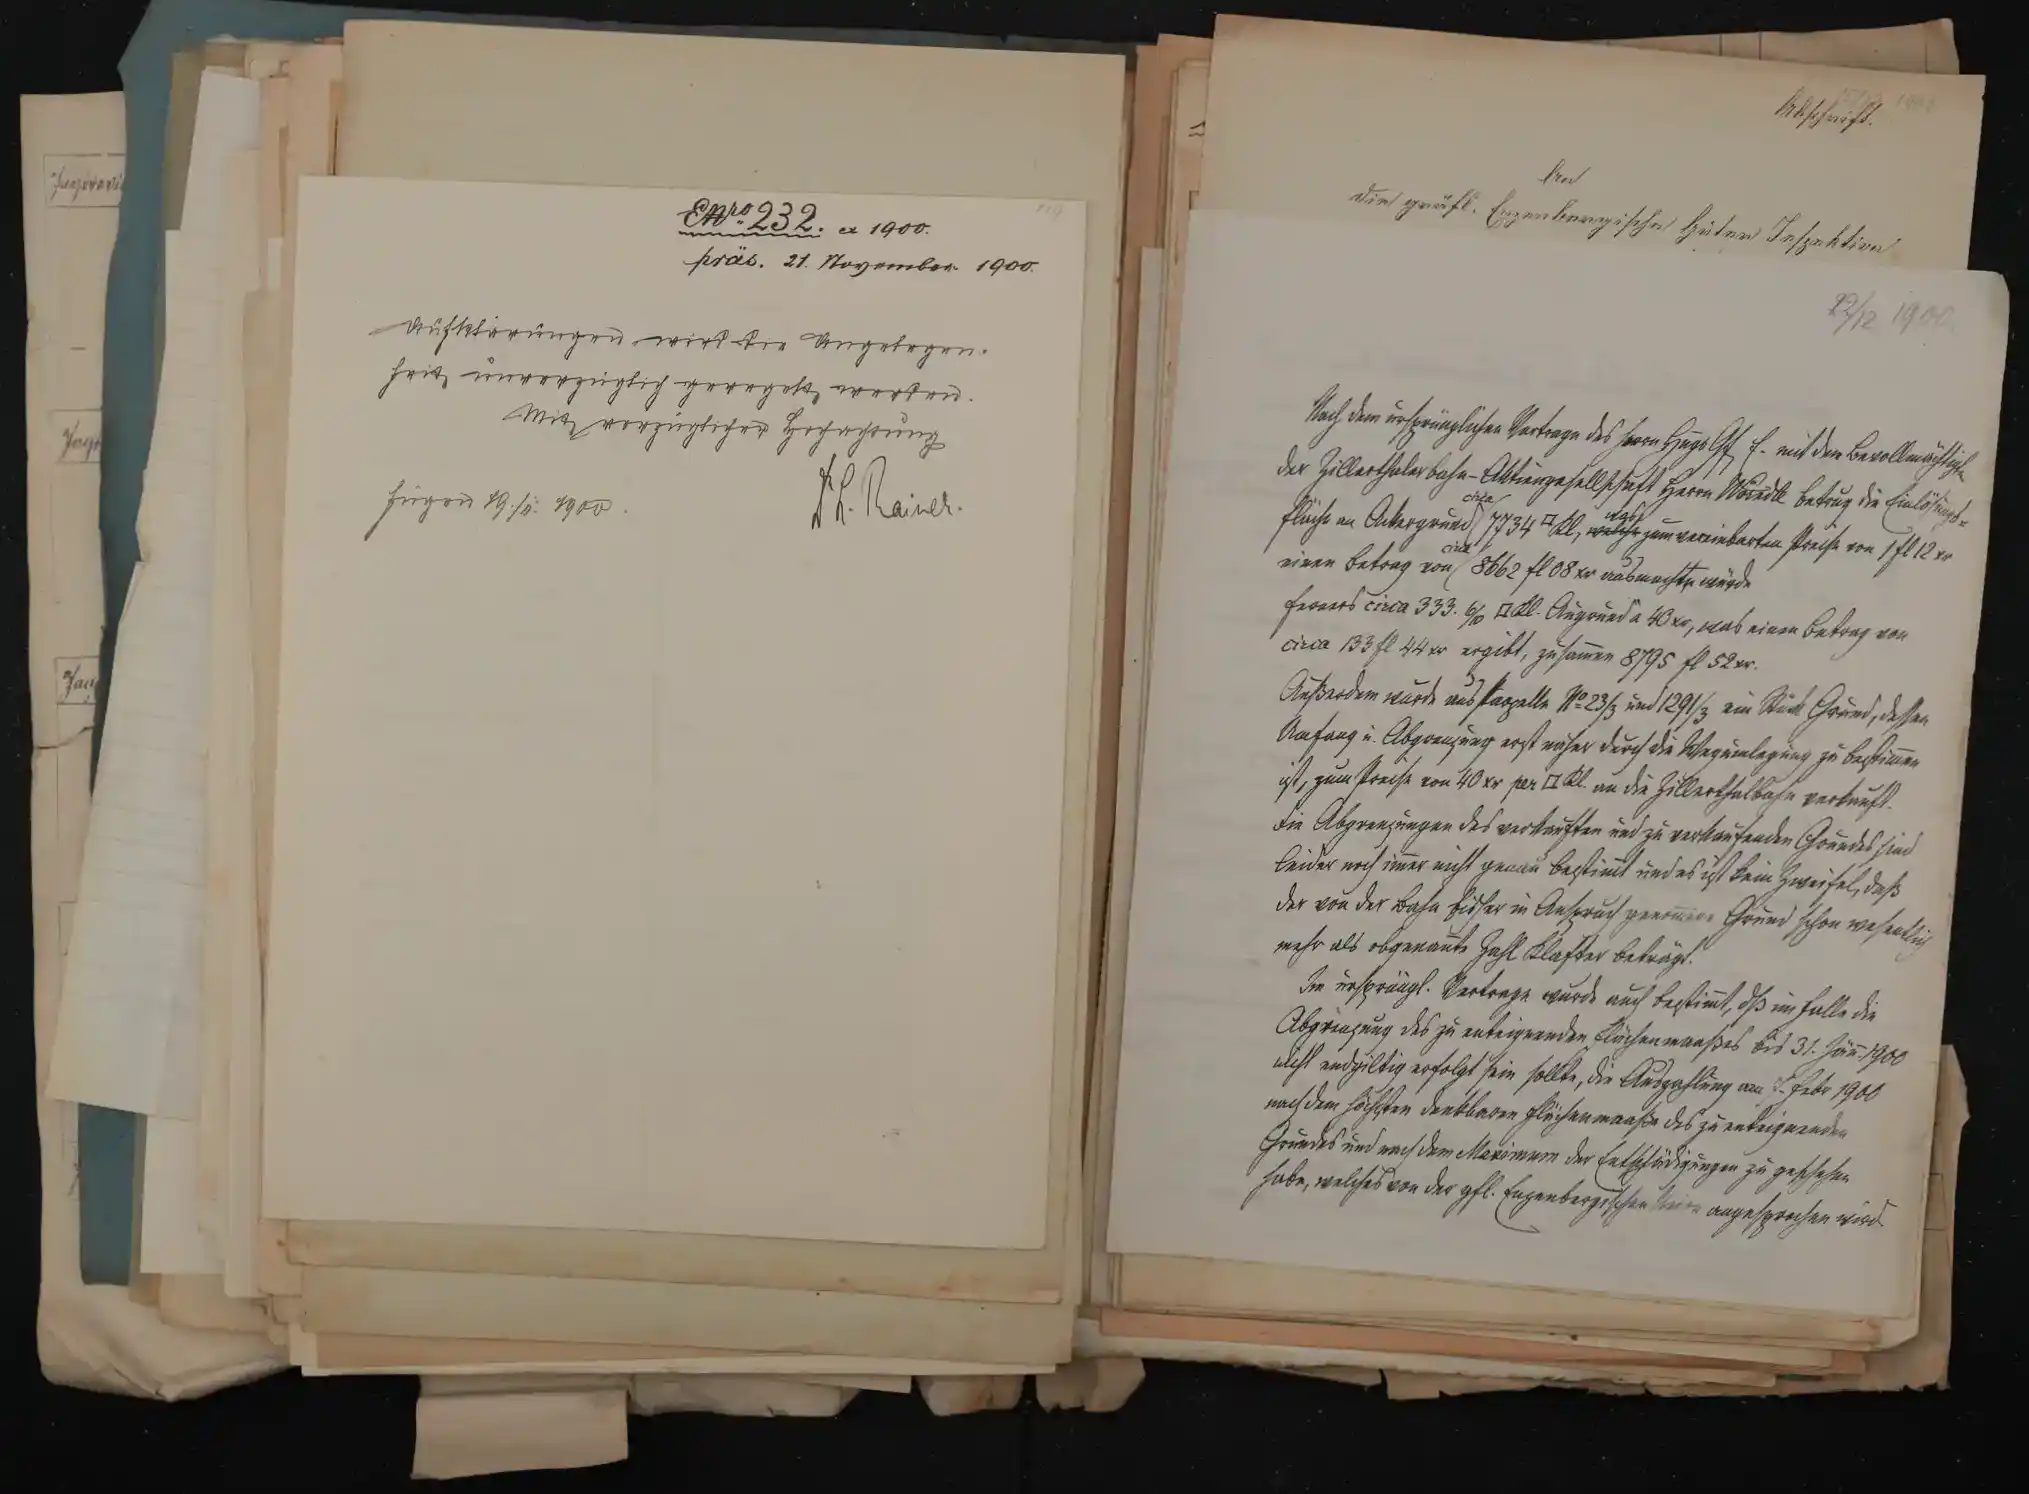 ENro 232. ex 1900.
präs. 21. November 1900.
Aufklärungen wird die Angelegen-
heit unverzüglich geregelt werden.
Mit vorzüglicher Hochachtung
Dr. Rainer.
Fügen 19./XI. 1900.
Abschrift.
An
die gräfl. Enzenbergische Güter Inspektion
22/12 1900
Nach dem ursprünglichen Vertrage des Herrn Hugo Gf. E. mit dem Bevollmächtigten
der Zillerthalerbahn-Aktiengesellschaft Herrn betrug die Einlösungs-
fläche an Ackergrund circa 7734 □ Kl, was zum vereinbarten Preise von 1 fl 12 xr
einen Betrag von circa 8662 fl 08 xr ausmachen würde
ferners circa 333. 6/10 □ Kl. Augrund a 40 xr, was einen Betrag von
circa 133 fl 44 xr ergibt, zusammen 8795 fl 52 xr.
Außerdem wurde aus Parzelle No 23/3 und 1291/3 ein Stück Grund, dessen
Umfang u. Abgrenzung erst näher durch die Wegumlegung zu bestimmen
ist, zum Preise von 40 xr per □ Kl. an die Zillerthalbahn verkauft.
Die Abgrenzungen des verkauften und zu verkaufenden Grundes sind
leider noch immer nicht genau bestimmt und es ist kein Zweifel, daß
der von der Bahn bisher in Anspruch genommene Grund schon wesentlich
mehr als obgenannte Zahl Klafter beträgt.
Im ursprüngl. Vertrage wurde auch bestimmt, dß im Falle die
Abgrenzung des zu enteignenden Flächenmaaßes bis 31. Jänn. 1900
nicht endgiltig erfolgt sein sollte, die Auszahlung am Febr 1900
nach dem höchsten denkbaren Flächenmaaße des zu enteignenden
Grundes und nach dem Maximum der Entschädigungen zu geschehen
habe, welches von der gfl. Enzenbergischen angesprochen wird